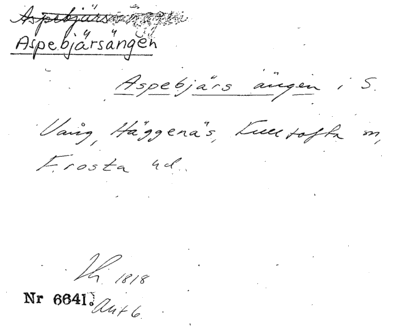 Aspebjärsängen
Aspebjärsängen
Aspebjärs ängen i S.
Vång, Häggenäs, Fulltofta m,
Frosta hd.
Th. 1818
Nr 6641. Akt 6.